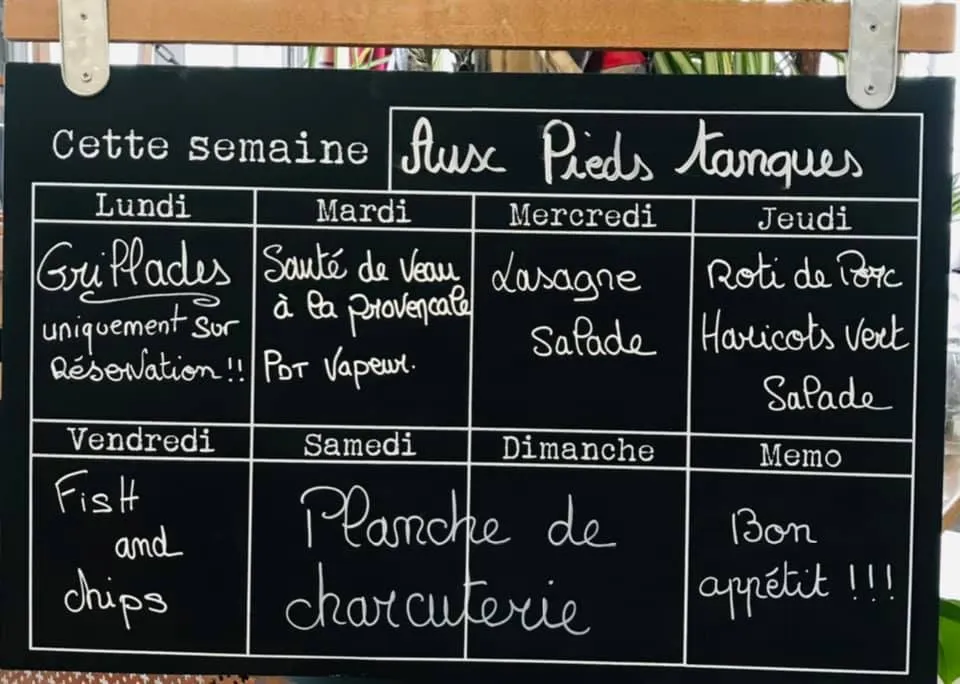 Cette semaine
Aux Pieds tanques
Lundi
Grillades
uniquement sur
Réservation !!
Mardi
Sauté de veau
à la provençale
PDT Vapeur.
Mercredi
Lasagne
Salade
Jeudi
Roti de Porc
Haricots Vert
Salade
Vendredi
Fish
and
chips
Samedi
Dimanche
Planche de
charcuterie
Memo
Bon
appétit !!!